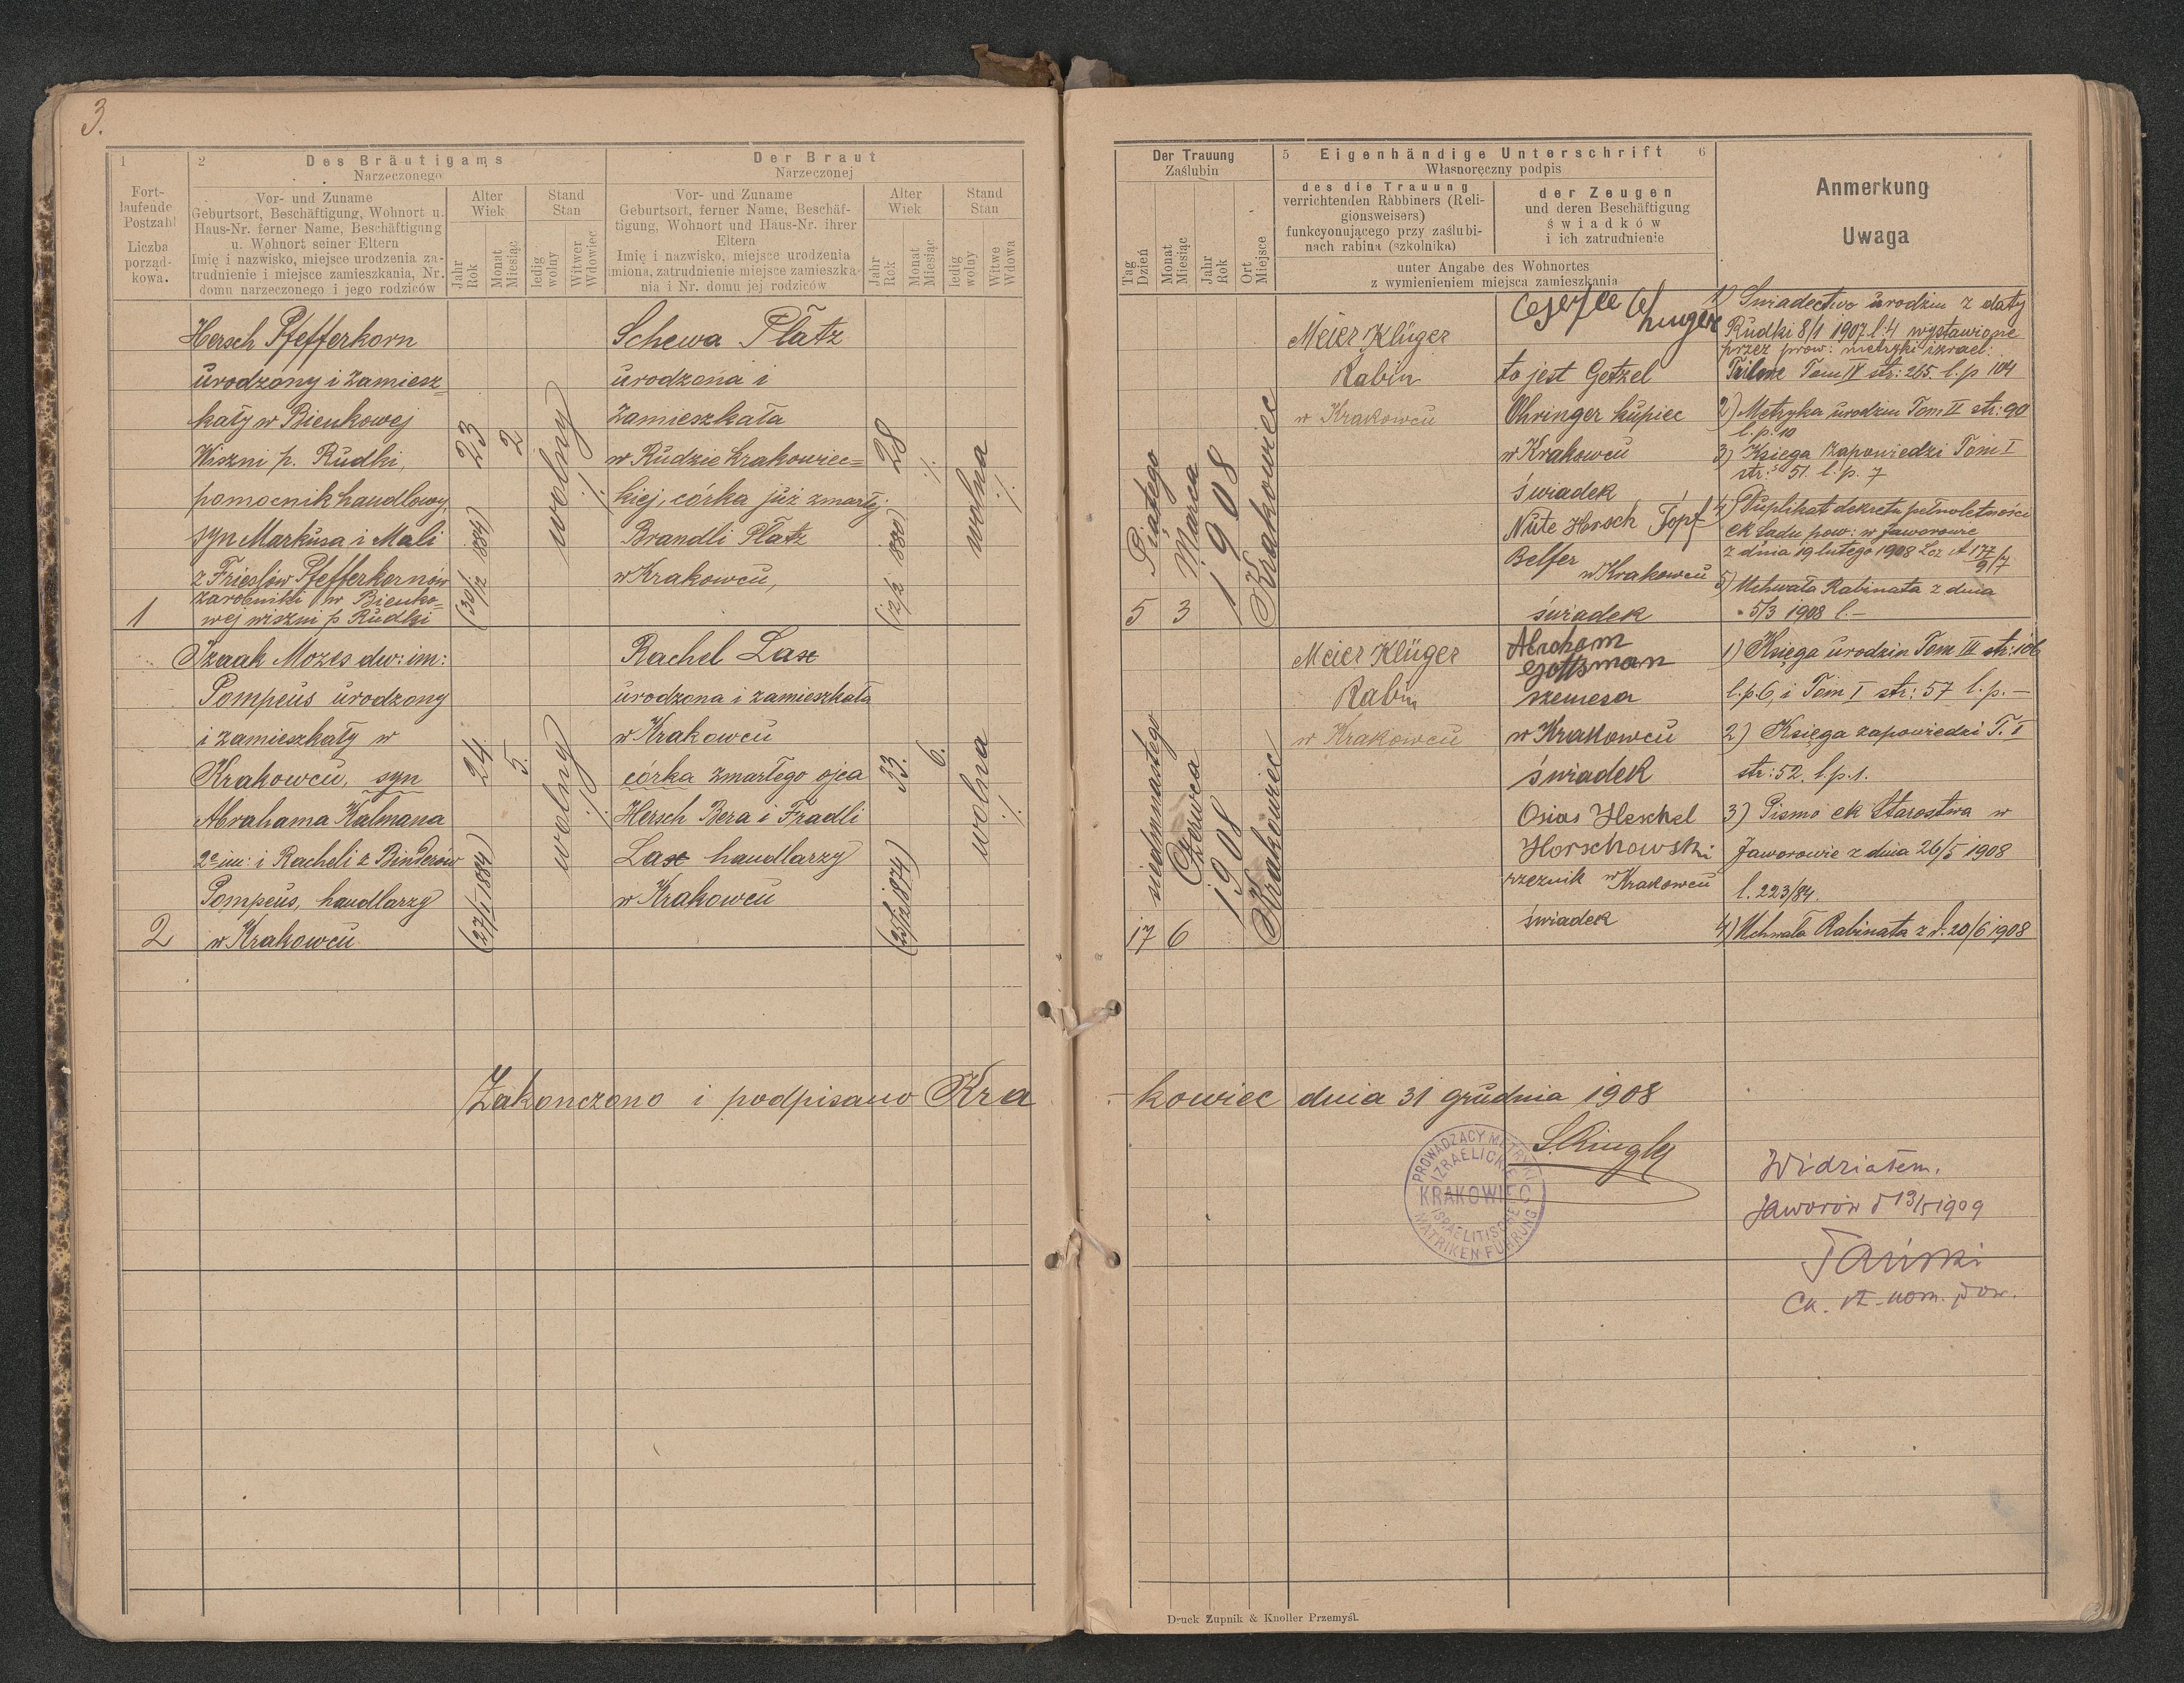 3.
1
2
Des Bräutigams
Narzeczonego
Der Braut
Narzeczonej
Fort-
laufende
Postzahl
Liczba
porząd-
kowa.
Vor- und Zuname
Geburtsort, Beschäftigung, Wohnort u.
Haus-Nr. ferner Name, Beschäftigung
u. Wohnort seiner Eltern
Imię i nazwisko, miejsce urodzenia za-
trudnienie i miejsce zamieszkania, Nr.
domu narzeczonego i jego rodziców
Alter
Wiek
Jahr
Rok
Monat
Miesiąc
Stand
Stan
ledig
wolny
Witwer
Wdowiec
Vor- und Zuname
Geburtsort, ferner Name, Beschäf-
tigung, Wohnort und Haus-Nr. ihrer
Eltern
Imię i nazwisko, miejsce urodzenia
imiona, zatrudnienie miejsce zamieszka-
nia i Nr. domu jej rodziców
Alter
Wiek
Jahr
Rok
Monat
Miesiąc
Stand
Stan
ledig
wolny
Witwe
Wdowa
Hersch Pfefferkorn
urodzony i zamiesz=
kały w Bieńkowej
Wiszni p. Rudki,
pomocnik handlowy,
syn Markusa i Mali
z Frieslów Pfefferkornów
zarobniki w Bieńko=
wej wiszni p Rudki
1
23
2
(30/12 1884)
wolny
./.
Schewa Platz
urodzona i
zamieszkała
w Rudzie krakowiec=
kiej, córka już zmarłej
Brandli Platz
w Krakowcu,
28
./.
(12/2 1880)
wolna
./.
Izaak Mozes dw: im:
Pompeus urodzony
i zamieszkały w
Krakowcu, syn
Abrahama Kalmana
2e im: i Racheli z Binderów
Pompeus, handlarzy
w Krakowcu
2
24
5.
(27/1 1884)
wolny
./.
Rachel Lax
urodzona i zamieszkała
w Krakowcu
córka zmarłego ojca
Hersch Bera i Fradli
Lax handlarzy
w Krakowcu
33.
6.
(25/12 1874)
wolna
./.
Zakonczono i podpisano Kra
Der Trauung
Zaślubin
Tag
Dzień
Monat
Miesiąc
Jahr
Rok
Ort
Miejsce
5
Eigenhändige Unterschrift
6
Własnoręczny podpis
des die Trauung
verrichtenden Rabbiners (Reli-
gionsweisers)
funkcyonującego przy zaślubi-
nach rabina (szkolnika)
der Zeugen
und deren Beschäftigung
świadków
i ich zatrudnienie
unter Angabe des Wohnortes
z wymienieniem miejsca zamieszkania
Anmerkung
Uwaga
Piątego
5
Marca
3
1908
Krakowiec
Meier Klüger
Rabin
w Krakowcu
to jest Getzel
Ohringer kupiec
w Krakowcu
świadek
Nute Horsch Topf
Belfer
w Krakowcu
świadek
1) Świadectwo urodzin z daty
Rudki 8/1 1907 l: 4 wystawione
przez prow: metryki izrael:
Tom IV str: 265. l. p 104
2) Metryka urodzin Tom II str: 90
l. p. 10
3) Księga Zapowiedzi Tom I
str: 51. l. p. 7
4) Duplikat dekretu pełnoletności
ck Sadu pow: w Jaworowie
z dnia 19 lutego 1908 Lcz A 177
9/7
5) Uchwała Rabinata z dnia
5/3 1908 l. –
siedmnastego
17
Czerwca
6
1908
Krakowiec
Meier Klüger
Rabin
w Krakowcu
Abraham
Gottsman
szemesa
w Krakowcu
świadek
Osias Heschel
Horschowski
rzeznik w Krakowcu
świadek
1) Księga urodzin Tom III str: 106
l. p. 6, i Tom I str: 57 l. p. –
2) Księga zapowiedzi T. I
str: 52. l. p. 1.
3) Pismo ck Starostwa w
Jaworowie z dnia 26/5 1908
l. 223/84.
4) Uchwała Rabinata z d. 20/6 1908
-kowiec dnia 31 grudnia 1908
PROWADZACY METRYKI
IZRAELICKIE
KRAKOWIEC
ISRAELITISCHE
MATRIKEN FÜHRUNG
Widziałem.
Jaworów d 13/5 1909
Druck Zupnik & Knoller Przemyśl.